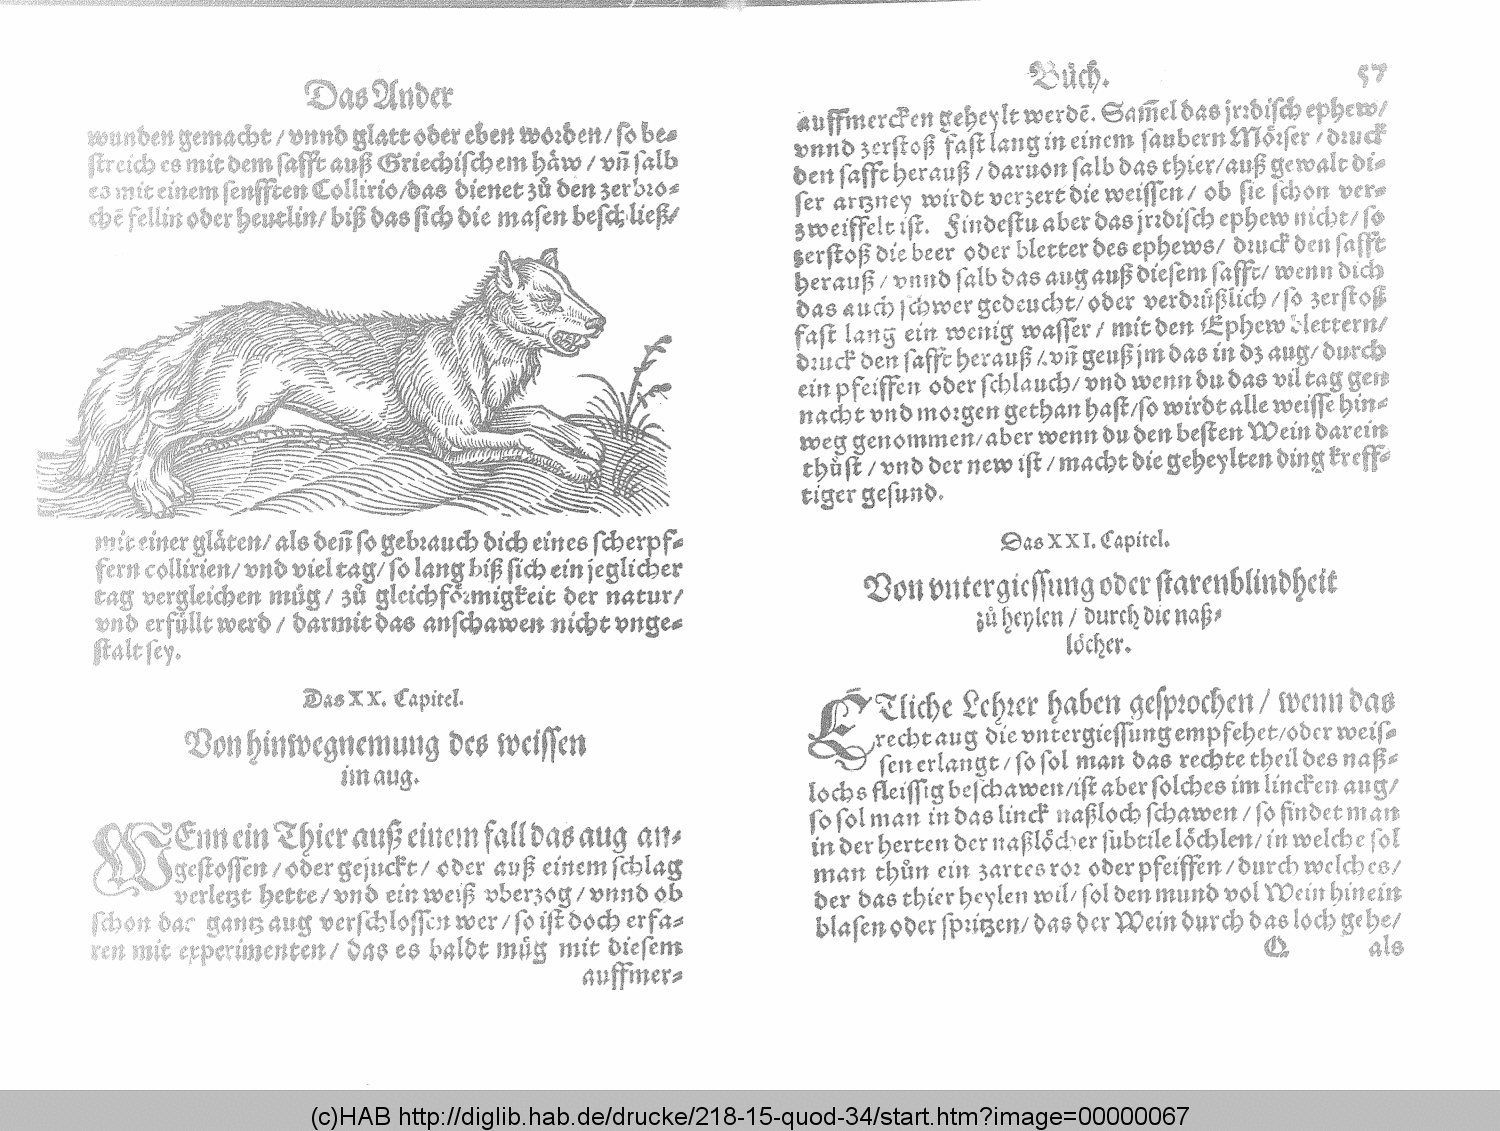 Das Ander
wunden gemacht / vnnd glatt oder eben worden / so be⸗
streich es mit dem safft auß Griechischem häw / vñ salb
es mit einem senfften Collirio / das dienet zů den zerbro⸗
chē fellin oder heutlin / biß das sich die masen beschließ /
mit einer gläten / als deñ so gebrauch dich eines scherpf⸗
fern collirien / vnd viel tag / so lang biß sich ein jeglicher
tag vergleichen müg / zů gleichförmigkeit der natur /
vnd erfüllt werd / darmit das anschawen nicht vnge⸗
stalt sey.
Das XX. Capitel.
Von hinwegnemung des weissen
im aug.
WEnn ein Thier auß einem fall das aug an⸗
gestossen / oder gejuckt / oder auß einem schlag
verletzt hette / vnd ein weiß vberzog / vnnd ob
schon das gantz aug verschlossen wer / so ist doch erfa⸗
ren mit experimenten / das es baldt müg mit diesem
auffmer⸗
Bůch. 57
auffmercken geheylt werdē. Sam̃el das jrdisch ephew /
vnnd zerstoß fast lang in einem saubern Mörser / druck
den safft herauß / daruon salb das thier / auß gewalt di⸗
ser artzney wirdt verzert die weissen / ob sie schon ver⸗
zweiffelt ist. Findestu aber das jrdisch ephew nicht / so
zerstoß die beer oder bletter des ephews / druck den safft
herauß / vnnd salb das aug auß diesem safft / wenn dich
das auch schwer gedeucht / oder verdrüßlich / so zerstoß
fast lang ein wenig wasser / mit den Ephew blettern /
druck den safft herauß / vñ geuß jm das in dz aug / durch
ein pfeiffen oder schlauch / vnd wenn du das vil tag gen
nacht vnd morgen gethan hast / so wirdt alle weisse hin⸗
weg genommen / aber wenn du den besten Wein darein
thůst / vnd der new ist / macht die geheylten ding kreff⸗
tiger gesund.
Das XXI. Capitel.
Von vntergiessung oder starenblindheit
zů heylen / durch die naß⸗
löcher.
ETliche Lehrer haben gesprochen / wenn das
recht aug die vntergiessung empfehet / oder weis⸗
sen erlangt / so sol man das rechte theil des naß⸗
lochs fleissig beschawen / ist aber solches im lincken aug /
so sol man in das linck naßloch schawen / so findet man
in der herten der naßlöcher subtile löchlen / in welche sol
man thůn ein zartes ror oder pfeiffen / durch welches /
der das thier heylen wil / sol den mund vol Wein hinein
blasen oder spritzen / das der Wein durch das loch gehe /
Q als
(c)HAB http://diglib.hab.de/drucke/218-15-quod-34/start.htm?image=00000067